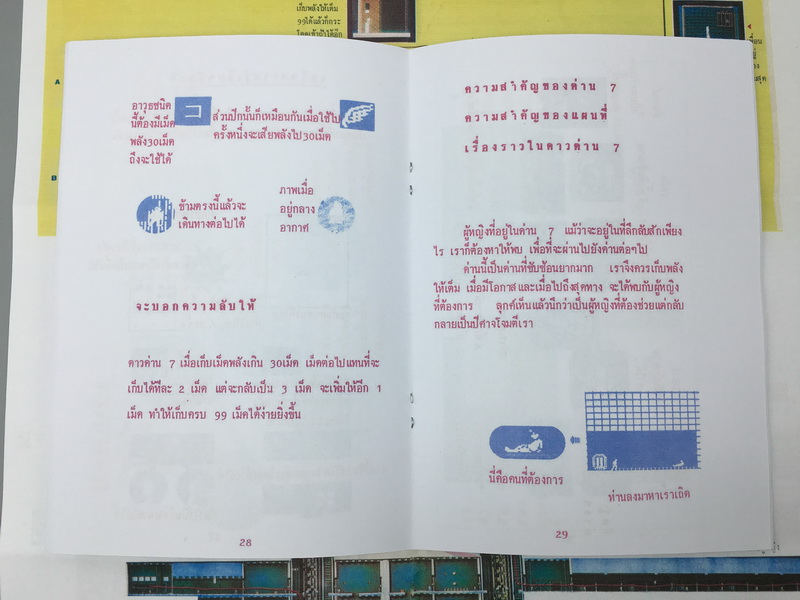 เก็บพลังให้เต็ม
99ได้แล้วก็กระ
A
B
อาวุธชนิด
นี้ต้องมีเม็ด
พลัง30เม็ด
ถึงจะใช้ได้
ส่วนปีกนั้นก็เหมือนกันเมื่อใช้ไป
ครั้งหนึ่งจะเสียพลังไป30เม็ด
ข้ามตรงนี้แล้วจะ
เดินทางต่อไปได้
ภาพเมื่อ
อยู่กลาง
อากาศ
จะบอกความลับให้
ดาวด่าน 7 เมื่อเก็บเม็ดพลังเกิน 30เม็ด เม็ดต่อไปแทนที่จะ
เก็บได้ทีละ 2 เม็ด แต่จะกลับเป็น 3 เม็ด จะเพิ่มให้อีก 1
เม็ด ทำให้เก็บครบ 99 เม็ดได้ง่ายยิ่งขึ้น
28
ความสำคัญของด่าน 7
ความสำคัญของแผนที่
เรื่องราวในดาวด่าน 7
ผู้หญิงที่อยู่ในด่าน 7 แม้ว่าจะอยู่ในที่ลึกลับสักเพียง
ไร เราก็ต้องหาให้พบ เพื่อที่จะผ่านไปยังด่านต่อๆไป
ด่านนี้เป็นด่านที่ซับซ้อนยากมาก เราจึงควรเก็บพลัง
ให้เต็ม เมื่อมีโอกาสและเมื่อไปถึงสุดทาง จะได้พบกับผู้หญิง
ที่ต้องการ ลุกค์เห็นแล้วนึกว่าเป็นผู้หญิงที่ต้องช่วยแต่กลับ
กลายเป็นปีศาจโจมตีเรา
นี่คือคนที่ต้องการ
ท่านลงมาหาเราเถิด
29